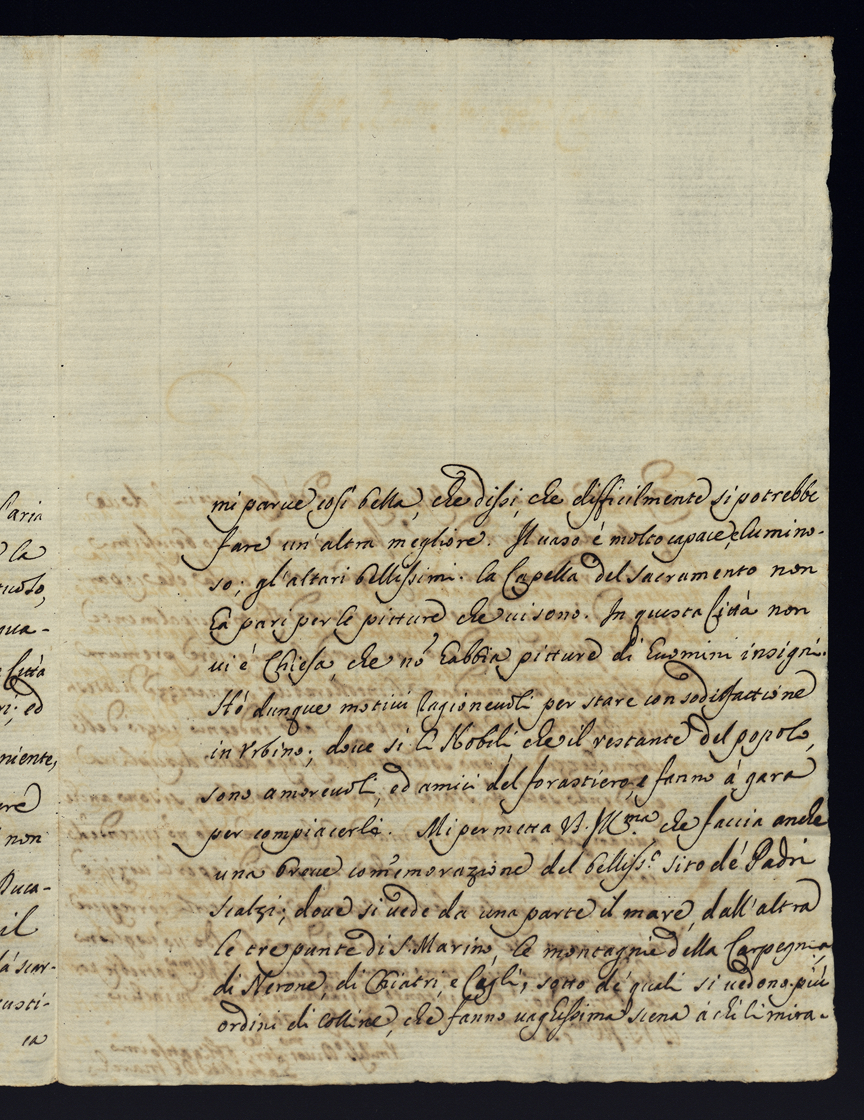 l'aria
la
tuoso,
qua-
Città
ri; ed
niente,
uré
non
Duca-
il
la scar-
usti-
ca
mi parve così bella, che dissi, che difficilmente si potrebbe
fare un'altra megliore. Il vaso é molto capace, e lumino-
so; gl'altari bellissimi. la Capella del sacramento non
ha pari per le pitture che vi sono. In questa Città non
vi é Chiesa, che nõ habbia pitture di Huomini insigni.
Hó dunque motivi ragionevoli per stare con sodisfattione
in Urbino; dove si li Nobili, che il restante del popolo,
sono amorevoli, ed amici del forastiero, e fanno á gara
per compiacerli. Mi permetta V. Ill.ma che faccia anche
una breve com̃emorazione del belliss.o sito dé Padri
scalzi; dove si vede da una parte il mare, dall'altra
le tre punte di S. Marino, le montagne della Carpegnia,
di Nerone, di Chiatri, e Cagli; sotto dé quali si vedono più
ordini di colline, che fanno vaghissima scena á chi li mira.